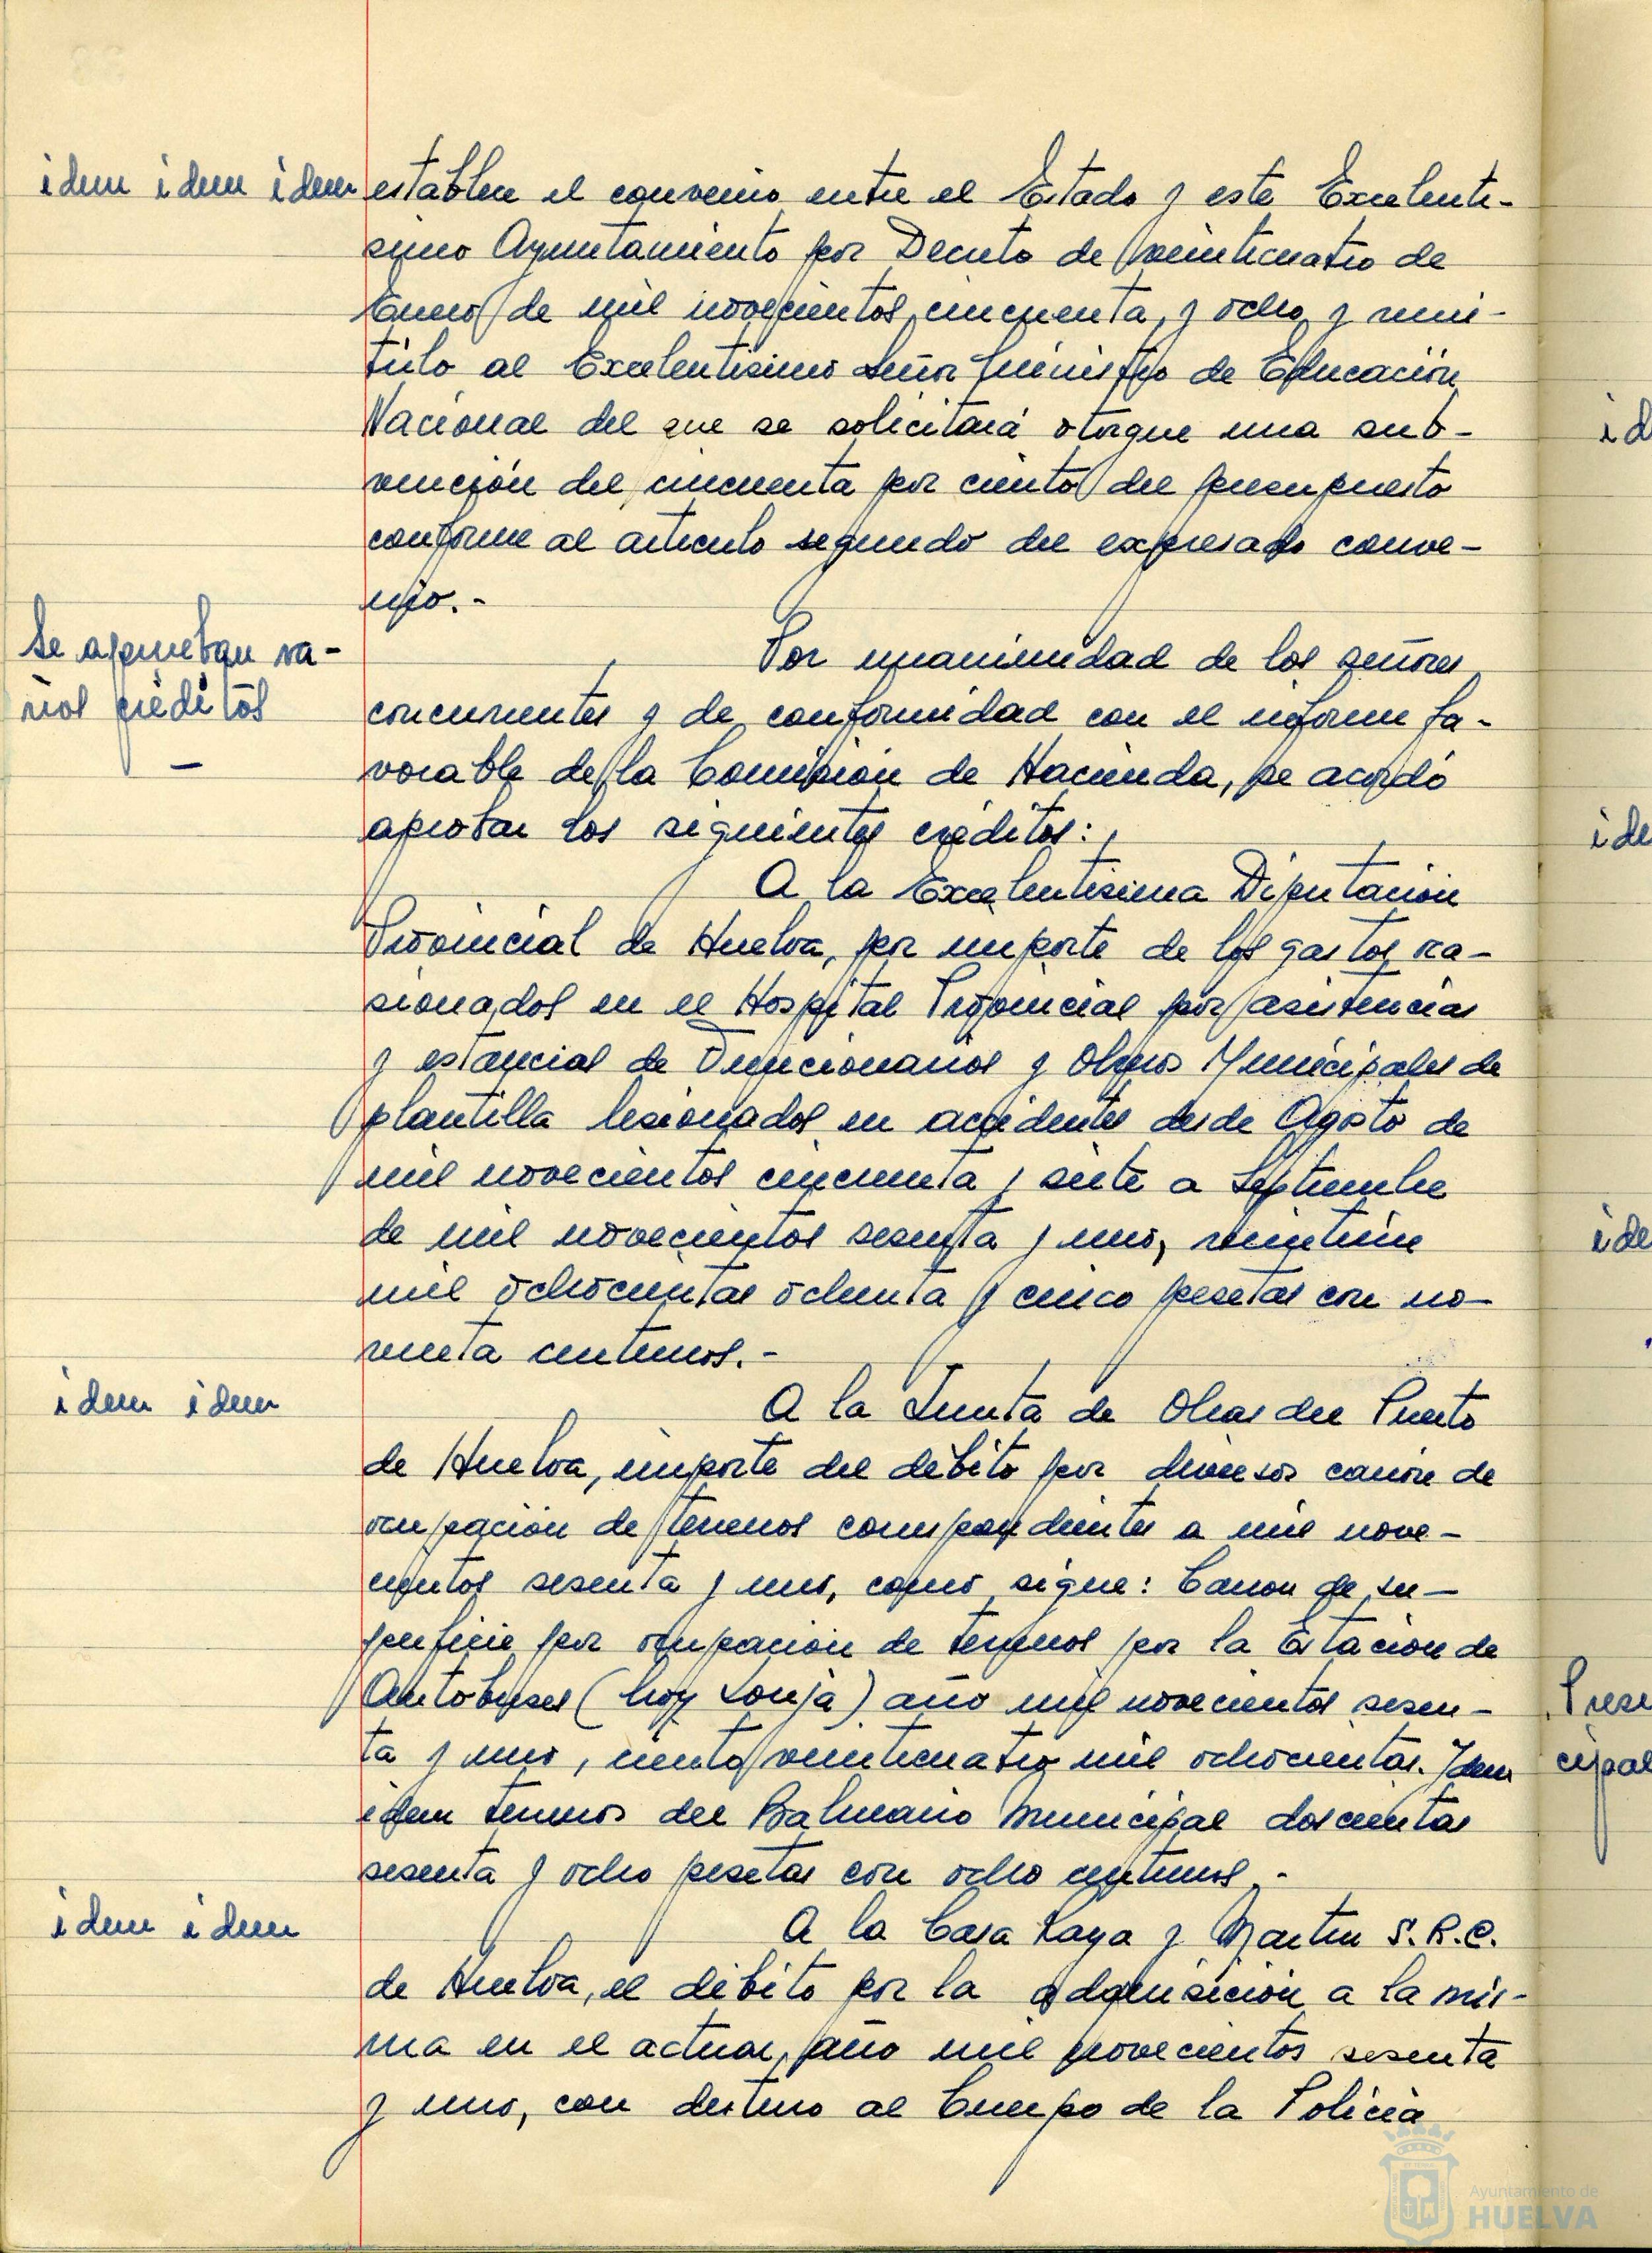 idem idem idem
establece el convenio entre el Estado y este Excelentí-
simo Ayuntamiento por Decreto de veinticuatro de
Enero de mil novecientos cincuenta y ocho y remi-
tirlo al Excelentísimo Señor Ministro de Educación
Nacional del que se solicitará otorgue una sub-
vención del cincuenta por ciento del presupuesto
conforme al articulo segundo del expresado conve-
nio.-
Se aprueban va-
rios créditos
Por unanimidad de los señores
concurrentes y de conformidad con el informe fa-
vorable de la Comisión de Hacienda, se acordó
aprobar los siguientes créditos:
A la Excelentisima Diputacion
Provincial de Huelva, por importe de los gastos oca-
sionados en el Hospital Provincial por asistencias
y estancias de Funcionarios y Obreros Municipales de
plantilla lesionados en accidentes desde Agosto de
mil novecientos cincuenta y siete a Septiembre
de mil novecientos sesenta y uno, veintiun
mil ochocientas ochenta y cinco pesetas con no-
venta centimos.-
idem idem
A la Junta de Obras del Puerto
de Huelva, importe del débito por diversos canon de
ocupación de terrenos correspondientes a mil nove-
cientos sesenta y uno, como sigue: Canon de su-
perficie por ocupacion de terrenos por la Estacion de
Autobuses (hoy Lonja) año mil novecientos sesen-
ta y uno, ciento veinticuatro mil ochocientas. Idem
idem terrenos del Balneario Municipal doscientas
sesenta y ocho pesetas con ocho centimos.-
idem idem
A la Casa Raya y Martin S.R.C.
de Huelva, el débito por la adquisición a la mis-
ma en el actual año mil novecientos sesenta
y uno, con destino al Cuerpo de la Policía
id
ide
ide
Prese
cipal
Ayuntamiento de
HUELVA